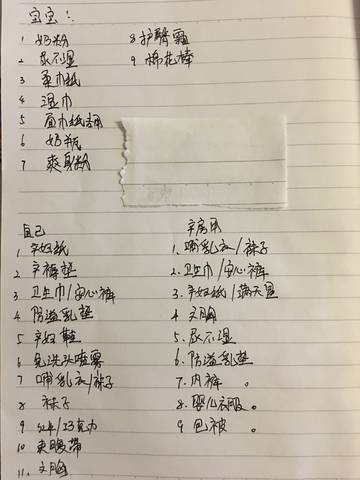 宝宝：
1 奶粉
2 尿不湿
3 柔巾纸
4 湿巾
5 面巾纸
6 奶瓶
7 爽身粉
8 护臀霜
9 棉花棒
自己
1 孕妇纸
2 孕褥垫
3 卫生巾/安心裤
4 防溢乳垫
5 孕妇鞋
6 免洗头喷雾
7 哺乳衣/袜子
8 袜子
9 红牛/巧克力
10 束腹带
11. 文胸
孕房用
1. 哺乳衣/袜子
2. 卫生巾/安心裤
3. 孕妇纸/满天星
4 文胸
5. 尿不湿
6. 防溢乳垫
7. 内裤 。
8. 婴儿衣服 。
9 包被 。